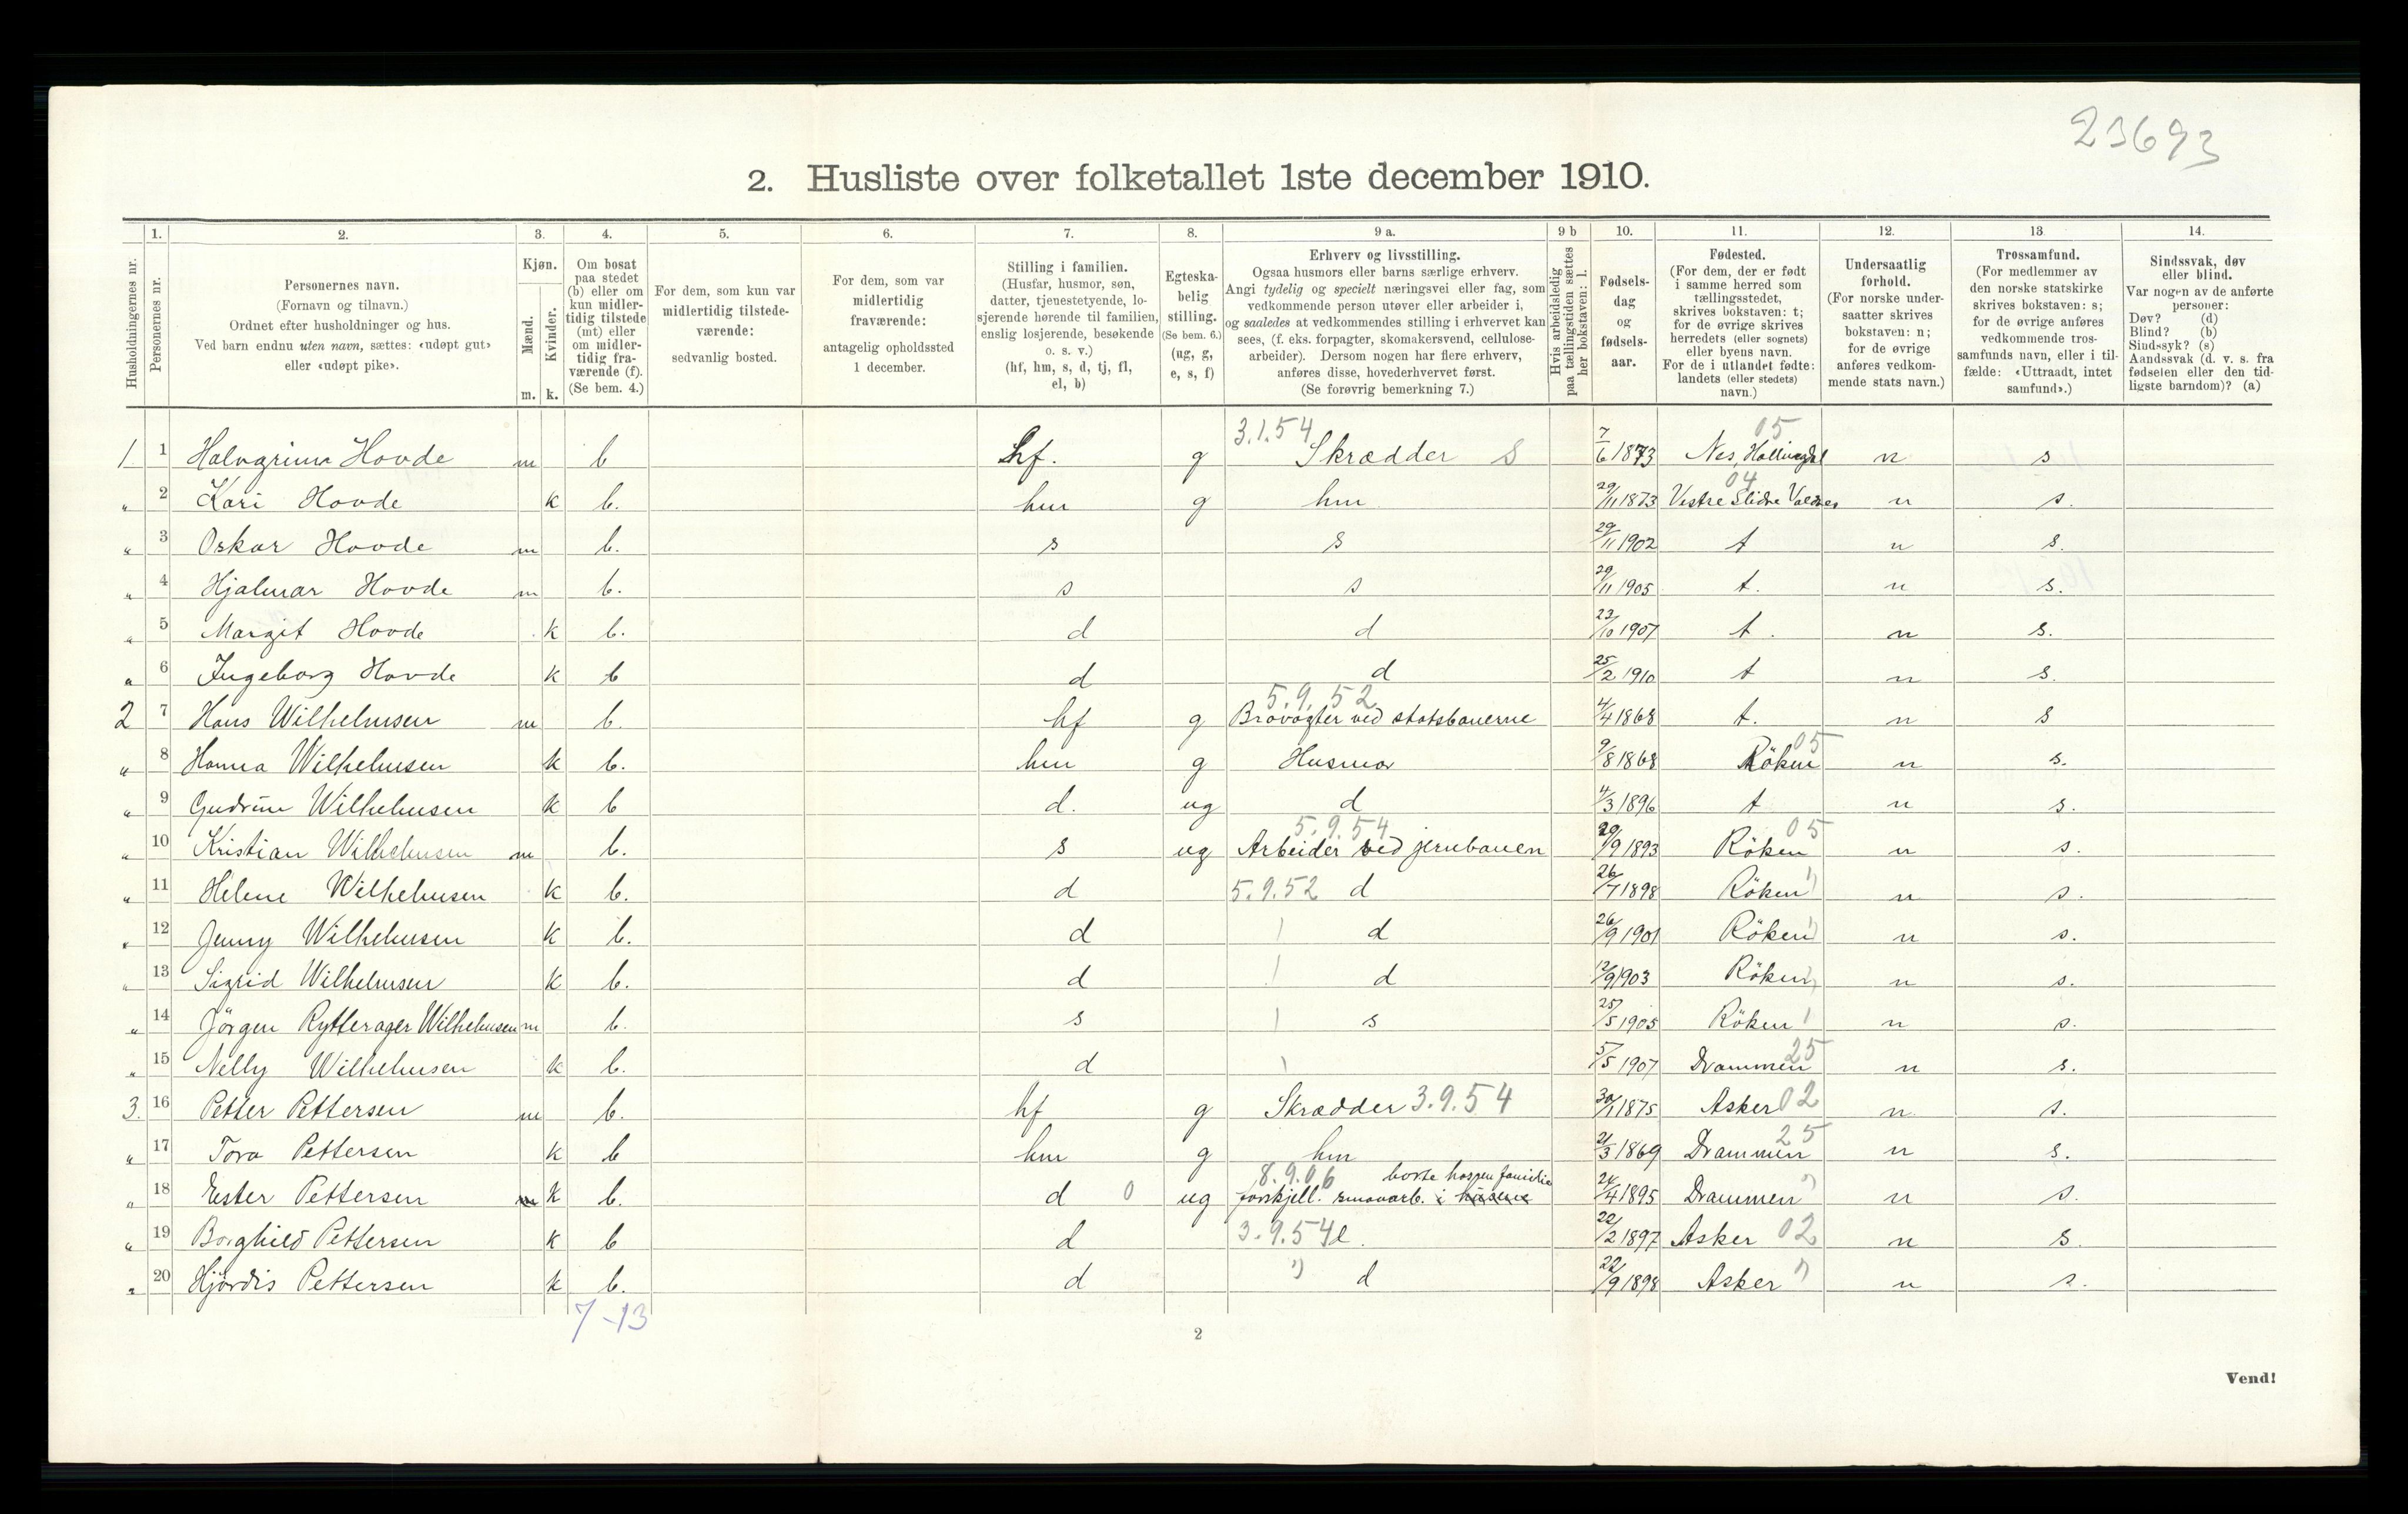 23693
2. Husliste over folketallet 1ste december 1910.
Husholdningernes nr.
1. Personernes nr.
2. Personernes navn. (Fornavn og tilnavn.) Ordnet efter husholdninger og hus. Ved barn endnu uten navn, sættes: «udøpt gut» eller «udøpt pike».
3. Kjøn. Mænd. m. Kvinder. k.
4. Om bosat paa stedet (b) eller om kun midlertidig tilstede (mt) eller om midlertidig fraværende (f). (Se bem. 4.)
5. For dem, som kun var midlertidig tilstedeværende: sedvanlig bosted.
6. For dem, som var midlertidig fraværende: antagelig opholdssted 1 december.
7. Stilling i familien. (Husfar, husmor, søn, datter, tjenestetyende, losjerende hørende til familien, enslig losjerende, besøkende o. s. v.) (hf, hm, s, d, tj, fl, el, b)
8. Egteskabelig stilling. (Se bem. 6.) (ug, g, e, s, f)
9 a. Erhverv og livsstilling. Ogsaa husmors eller barns særlige erhverv. Angi tydelig og specielt næringsvei eller fag, som vedkommende person utøver eller arbeider i, og saaledes at vedkommendes stilling i erhvervet kan sees, (f. eks. forpagter, skomakersvend, cellulosearbeider). Dersom nogen har flere erhverv, anføres disse, hovederhvervet først. (Se forøvrig bemerkning 7.)
9 b Hvis arbeidsledig paa tællingstiden sættes her bokstaven: l.
10. Fødselsdag og fødselsaar.
11. Fødested. (For dem, der er født i samme herred som tællingsstedet, skrives bokstaven: t; for de øvrige skrives herredets (eller sognets) eller byens navn. For de i utlandet fødte: landets (eller stedets) navn.)
12. Undersaatlig forhold. (For norske undersaatter skrives bokstaven: n; for de øvrige anføres vedkommende stats navn.)
13. Trossamfund. (For medlemmer av den norske statskirke skrives bokstaven: s; for de øvrige anføres vedkommende trossamfunds navn, eller i tilfælde: «Uttraadt, intet samfund».)
14. Sindssvak, døv eller blind. Var nogen av de anførte personer: Døv? (d) Blind? (b) Sindssyk? (s) Aandssvak (d. v. s. fra fødselen eller den tidligste barndom)? (a)
3.1.54 05
1 1 Halvgrim Hovde m b hf. g Skrædder S 7/6 1873 Nes, Hallingdal n s
04
" 2 Kari Hovde k b. hm g hm 29/11 1873 Vestre Slidre Valdres n s.
" 3 Oskar Hovde m b. s s 29/11 1902 t n s.
" 4 Hjalmar Hovde m b. s s 29/11 1905 t. n s.
" 5 Margit Hovde k b. d d 23/10 1907 t. n s.
" 6 Ingeborg Hovde k b d d 25/2 1910 t n s.
5.9.52
2 7 Hans Wilhelmsen m b. hf g Brovogter ved statsbanerne 4/4 1868 t. n s
05
" 8 Hanna Wilhelmsen k b. hm g Husmor 9/8 1868 Röken n s.
" 9 Gudrun Wilhelmsen k b d. ug d 4/3 1896 t n s.
5.9.54 05
" 10 Kristian Wilhelmsen m b. s ug Arbeider ved jernbanen 20/9 1893 Röken n s.
" 11 Helene Wilhelmsen k b. d 5.9.52 d 26/7 1898 Röken n s.
" 12 Jenny Wilhelmsen k b. d d 26/9 1901 Röken n s.
" 13 Sigrid Wilhelmsen k b. d d 12/9 1903 Röken n s.
" 14 Jörgen Rytterager Wilhelmsen m b. s s 25/5 1905 Röken n s.
25
" 15 Nelly Wilhelmsen k b. d 5/5 1907 Drammen n s.
3. 16 Petter Pettersen m b. hf g Skrædder 3.9.54 30/1 1875 Asker 02 n s.
25
" 17 Tora Pettersen k b hm g hm 21/3 1869 Drammen n s.
8.9.06 borte hos en familie
" 18 Ester Pettersen m k b. d 0 ug forskjell. smaaarb. i husene 24/4 1895 Drammen " n s.
" 19 Borghild Pettersen k b d 3.9.54 d. 22/2 1897 Asker 02 n s.
" 20 Hjördis Pettersen k b. d " d 22/9 1898 Asker " n s.
7-13
2
Vend!